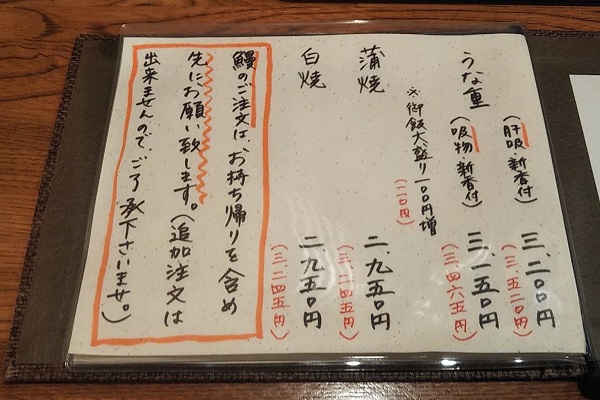 うな重
（肝吸・新香付） 三、二〇〇円
（三、五二〇円）
（吸物・新香付） 三、一五〇円
（三、四六五円）
※御飯大盛り一〇〇円増
（一一〇円）
蒲焼 二、九五〇円
（三、二四五円）
白焼 二、九五〇円
（三、二四五円）
鰻のご注文は、お持ち帰りを含め
先にお願い致します。（追加注文は
出来ませんので、ご了承下さいませ。）